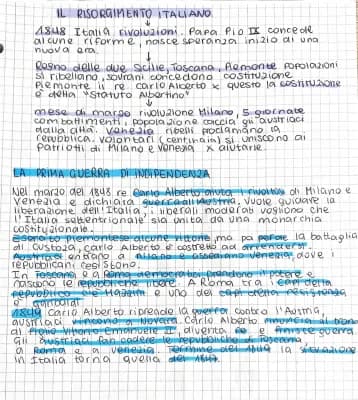 IL RISORGIMENTO ITALIANO
1848 Italia rivoluzioni. Papa Pio IX concede
alcune riforme, nasce speranza inizio di una
nuova era.
Regno delle due Sicilie, Toscana, Piemonte popolazioni
si ribellano, sovrani concedono costituzione
Piemonte il re Carlo Alberto x questo la costituzione
è detta "Statuto Albertino"
mese di marzo rivoluzione Milano, 5 giornate
combattimenti, popolazione caccia gli austriaci
dalla città. Venezia ribelli proclamano la
repubblica. Volontari (centinaia) si uniscono ai
patrioti di Milano e Venezia x aiutarle.
LA PRIMA GUERRA DI INDIPENDENZA
Nel marzo del 1848 re Carlo Alberto aiuta i rivoltosi di Milano e
Venezia e dichiara guerra all'Austria, vuole guidare la
liberazione dell'Italia, i liberali moderati vogliono che
l'Italia settentrionale sia unita da una monarchia
costituzionale.
Esercito piemontese alcune vittorie, ma poi perde la battaglia
di Custoza, Carlo Alberto è costretto ad arrendersi.
Austriaci entrano a Milano e assediano Venezia, dove i
repubblicani resistono.
In Toscana e a Roma democratici prendono il potere e
nascono le repubbliche libere. A Roma tra i capi della
repubblica c'è Mazzini e uno dei capi della resistenza
è Garibaldi
1849 Carlo Alberto riprende la guerra contro l'Austria,
austriaci vincono a Novara. Carlo Alberto rinuncia al trono
al figlio Vittorio Emanuele II, diventa re e finisce guerra
gli austriaci fan cadere le repubbliche di Toscana,
a Roma e a Venezia. Termine del 1849 la situazione
in Italia torna quella del 1847.